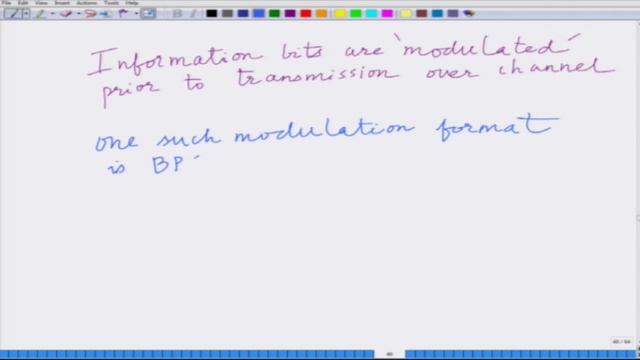 File Edit View Insert Actions Tools Help
Information bits are 'modulated'
prior to transmission over channel
one such modulation format
is BP
40